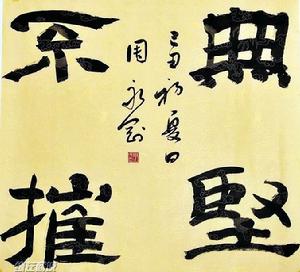 無堅
己丑初夏日
周永
不摧